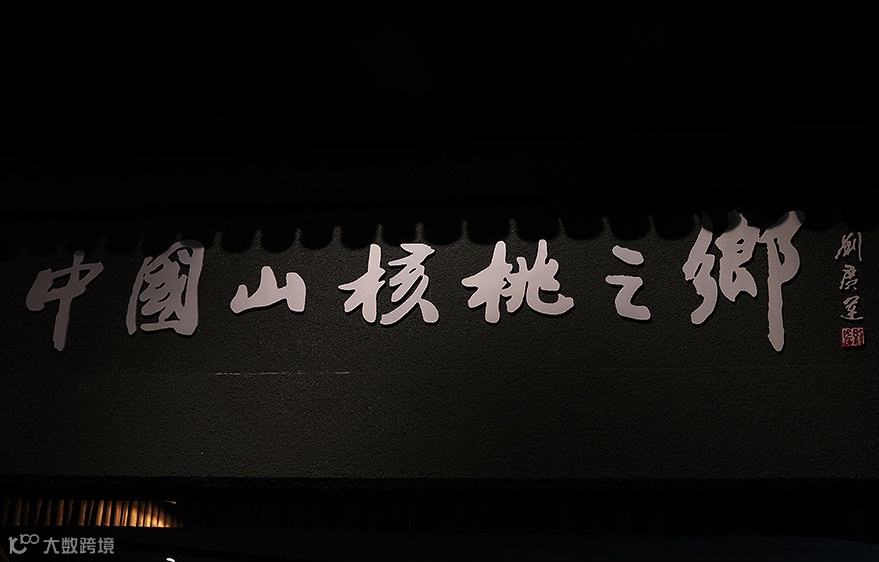 中國山核桃之鄉
劉廣運
大数跨境